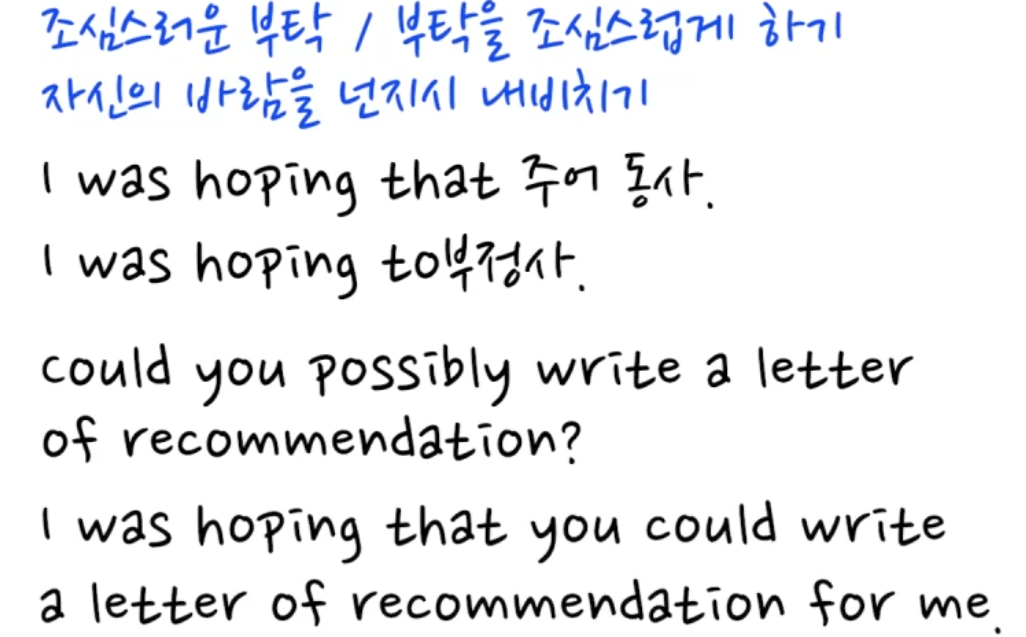 조심스러운 부탁 / 부탁을 조심스럽게 하기
자신의 바람을 넌지시 내비치기
I was hoping that 주어 동사.
I was hoping to부정사.
could you possibly write a letter
of recommendation?
I was hoping that you could write
a letter of recommendation for me.